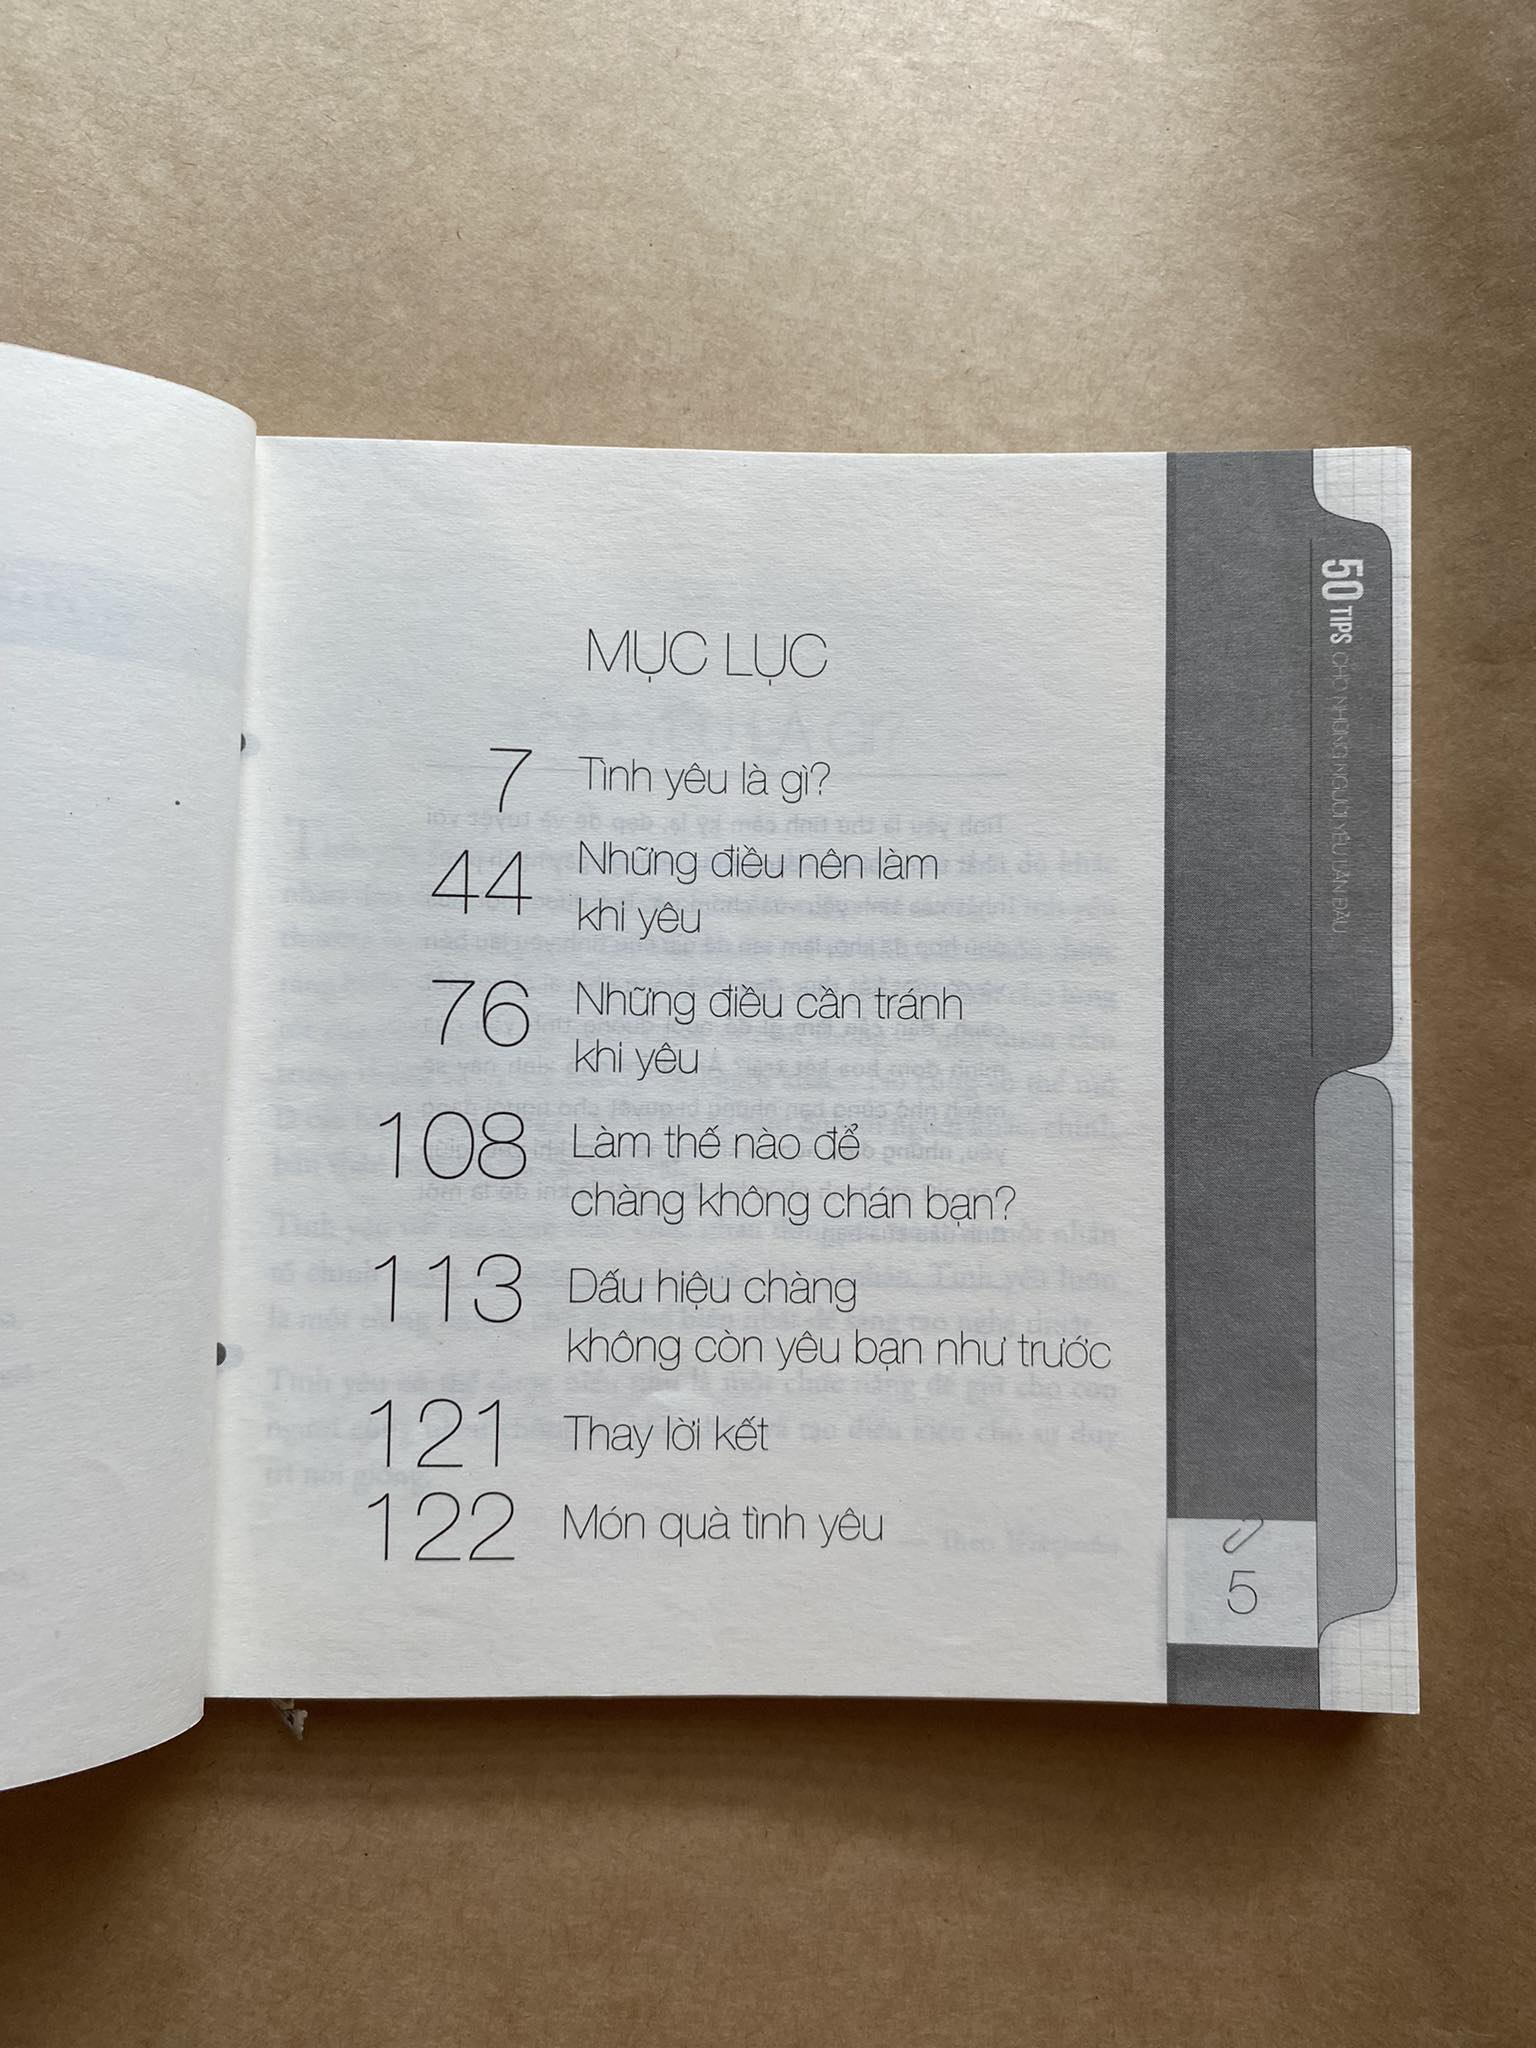 MỤC LỤC
7 Tình yêu là gì?
44 Những điều nên làm
khi yêu
76 Những điều cần tránh
khi yêu
108 Làm thế nào để
chàng không chán bạn?
113 Dấu hiệu chàng
không còn yêu bạn như trước
121 Thay lời kết
122 Món quà tình yêu
50 TIPS CHO NHỮNG NGƯỜI YÊU LẦN ĐẦU
5